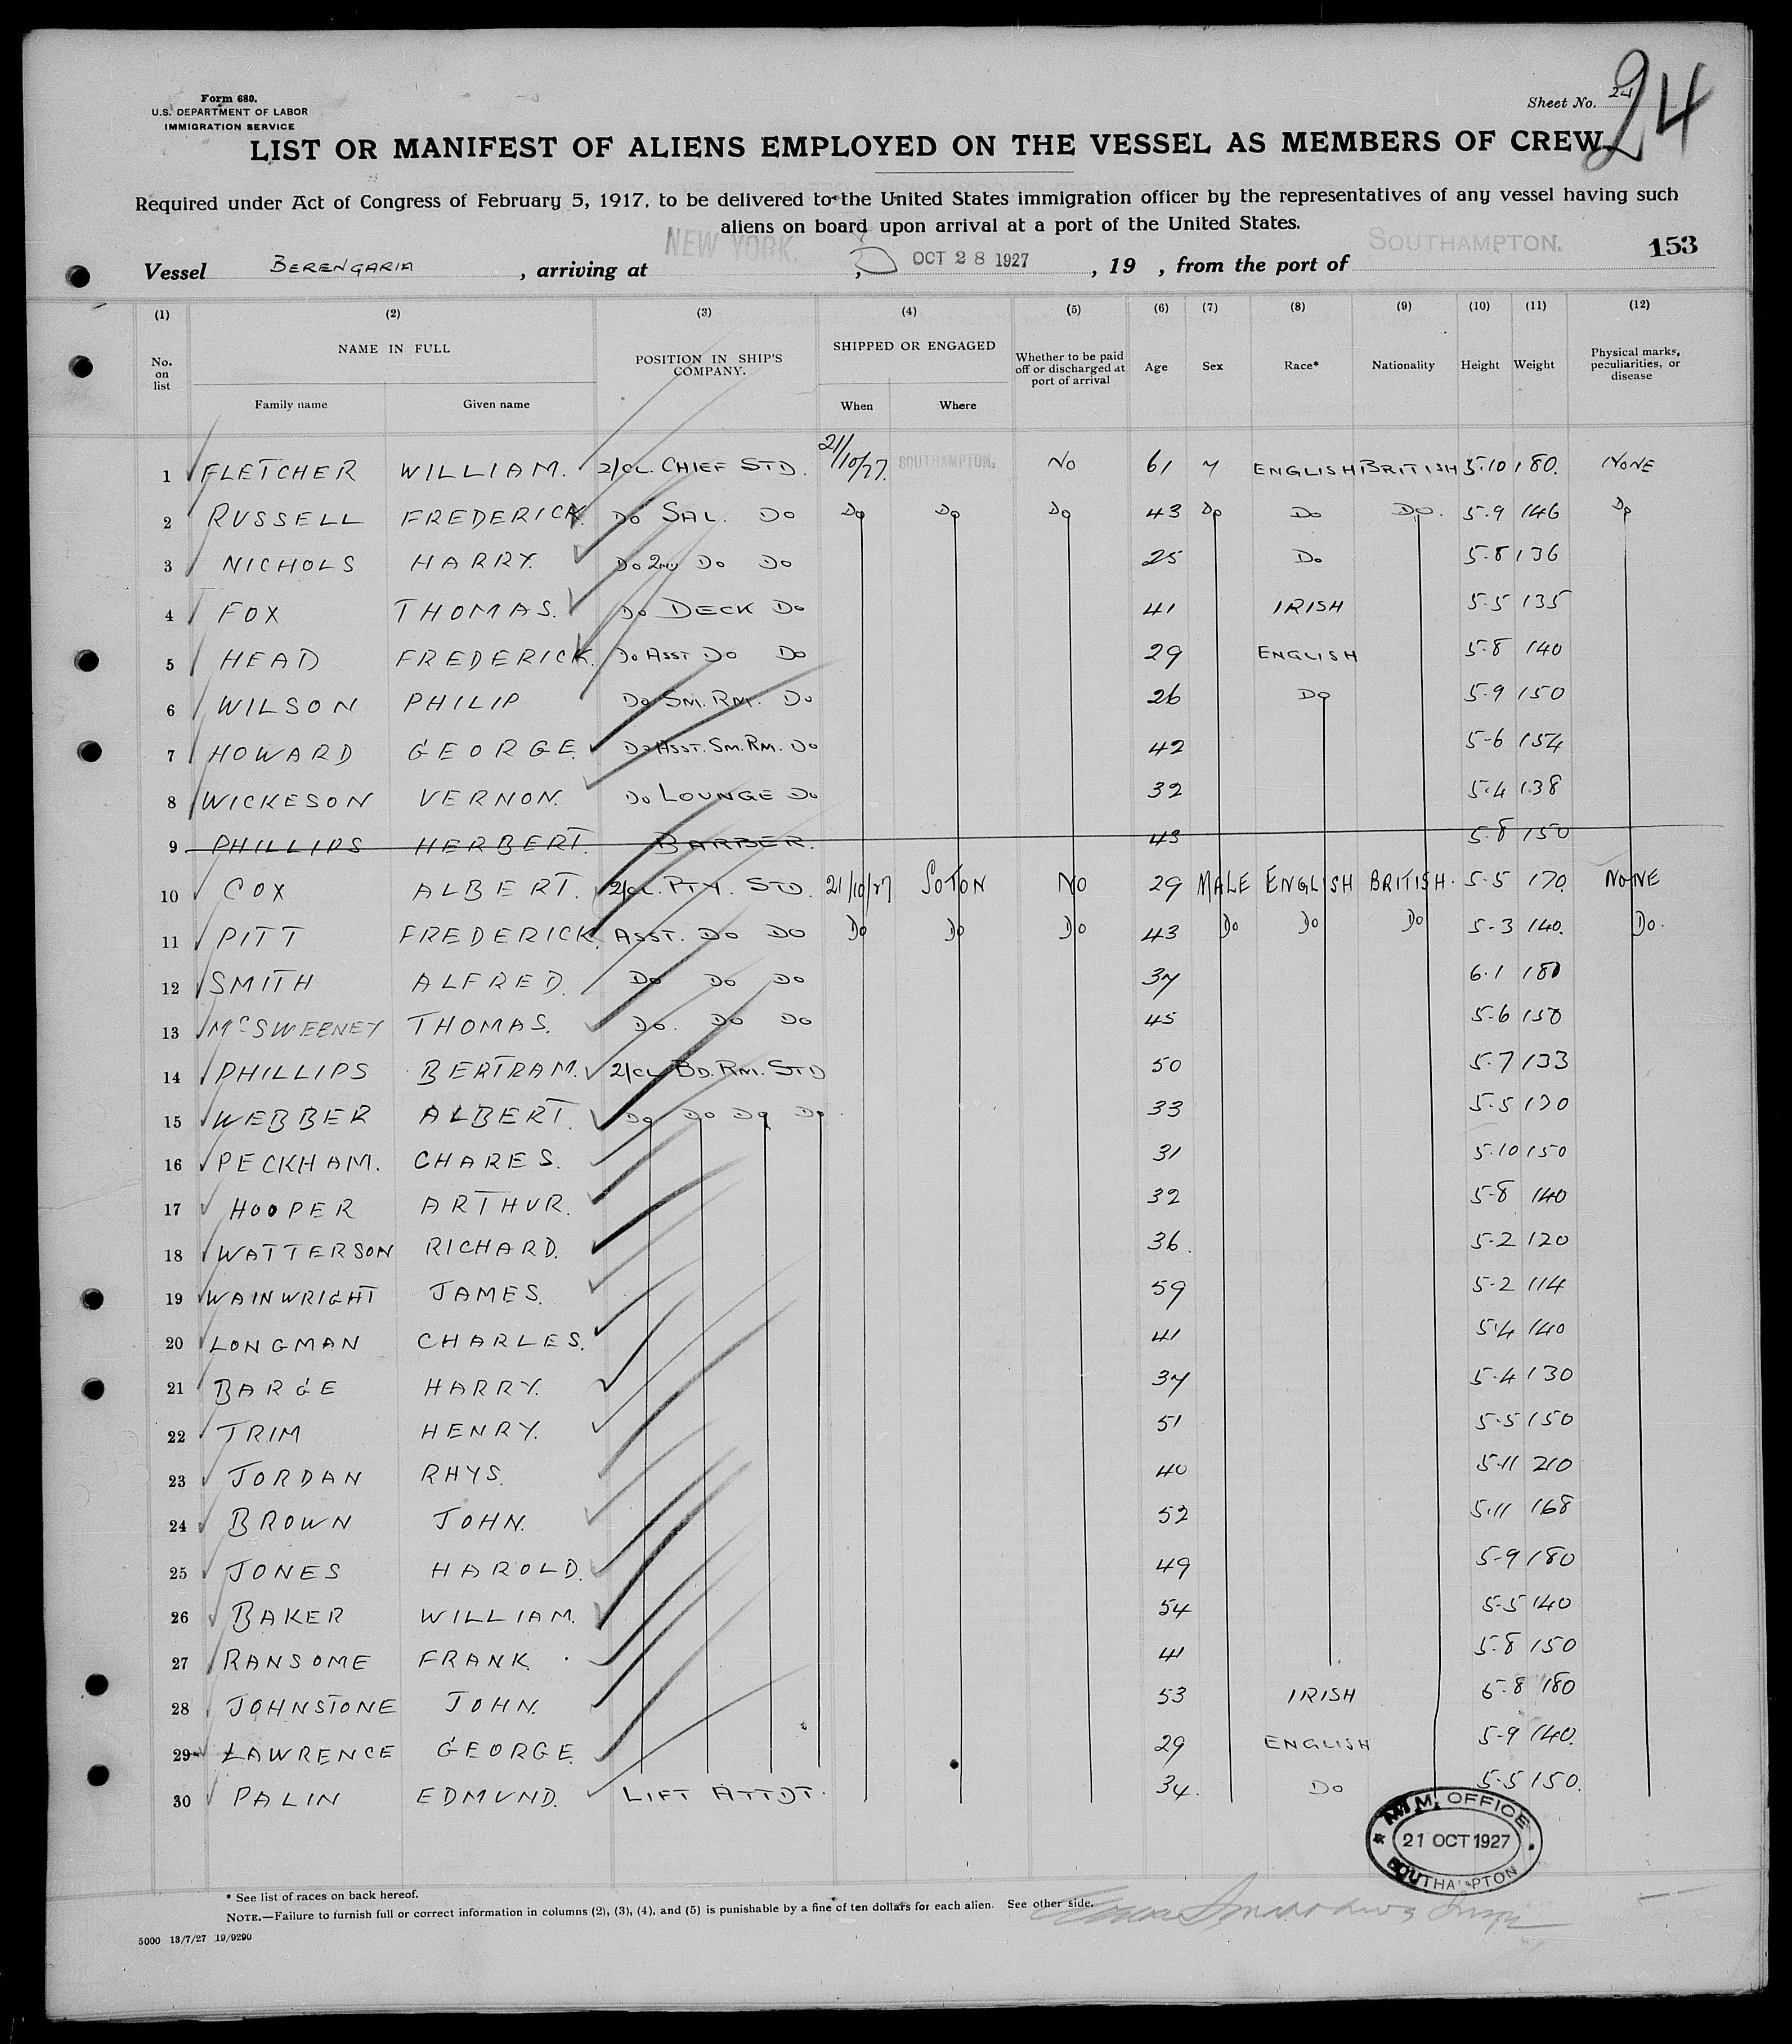 Form 680.
U.S. DEPARTMENT OF LABOR
IMMIGRATION SERVICE
Sheet No. 24
24
LIST OR MANIFEST OF ALIENS EMPLOYED ON THE VESSEL AS MEMBERS OF CREW
Required under Act of Congress of February 5, 1917, to be delivered to the United States immigration officer by the representatives of any vessel having such
aliens on board upon arrival at a port of the United States.
Vessel BERENGARIA, arriving at NEW YORK, OCT 28 1927, 19 , from the port of SOUTHAMPTON. 153
(1) (2) (3) (4) (5) (6) (7) (8) (9) (10) (11) (12)
No. on list NAME IN FULL POSITION IN SHIP'S COMPANY. SHIPPED OR ENGAGED Whether to be paid off or discharged at port of arrival Age Sex Race* Nationality Height Weight Physical marks, peculiarities, or disease
Family name Given name When Where
1 FLETCHER WILLIAM. 2/CL. CHIEF STD. 21/10/27. SOUTHAMPTON. NO 61 M ENGLISH BRITISH 5.10 180. NONE
2 RUSSELL FREDERICK. DO SAL. DO DO DO DO 43 DO DO DO. 5.9 146 DO
3 NICHOLS HARRY. DO 2ND DO DO 25 DO 5.8 136
4 FOX THOMAS. DO DECK DO 41 IRISH 5.5 135
5 HEAD FREDERICK. DO ASST DO DO 29 ENGLISH 5.8 140
6 WILSON PHILIP DO SM. RM. DO 26 DO 5.9 150
7 HOWARD GEORGE. DO ASST. SM. RM. DO 42 5-6 154
8 WICKESON VERNON. DO LOUNGE DO 32 5.4 138
9 PHILLIPS HERBERT. BARBER. 43 5.8 150
10 COX ALBERT. 2/CL. PTY. STD. 21/10/27 SOTON NO 29 MALE ENGLISH BRITISH. 5.5 170. NONE
11 PITT FREDERICK. ASST. DO DO DO DO DO 43 DO DO DO 5.3 140. DO.
12 SMITH ALFRED. DO DO DO 37 6.1 180
13 McSWEENEY THOMAS. DO. DO DO 45 5.6 150
14 PHILLIPS BERTRAM. 2/CL BD. RM. STD 50 5.7 133
15 WEBBER ALBERT. DO DO DO DO 33 5.5 170
16 PECKHAM. CHARES. 31 5.10 150
17 HOOPER ARTHUR. 32 5-8 140
18 WATTERSON RICHARD. 36. 5-2 120
19 WAINWRIGHT JAMES. 59 5-2 114
20 LONGMAN CHARLES. 41 5.4 140
21 BARGE HARRY. 37 5.4 130
22 TRIM HENRY. 51 5.5 150
23 JORDAN RHYS. 40 5.11 210
24 BROWN JOHN. 52 5.11 168
25 JONES HAROLD. 49 5-9 180
26 BAKER WILLIAM. 54 5-5 140
27 RANSOME FRANK. 41 5.8 150
28 JOHNSTONE JOHN. 53 IRISH 5.8 180
29 LAWRENCE GEORGE. 29 ENGLISH 5-9 140.
30 PALIN EDMUND. LIFT ATTDT. 34. DO 5.5 150.
M.M. OFFICE
21 OCT 1927
SOUTHAMPTON
* See list of races on back hereof.
NOTE.—Failure to furnish full or correct information in columns (2), (3), (4), and (5) is punishable by a fine of ten dollars for each alien. See other side.
5000 13/7/27 19/9290